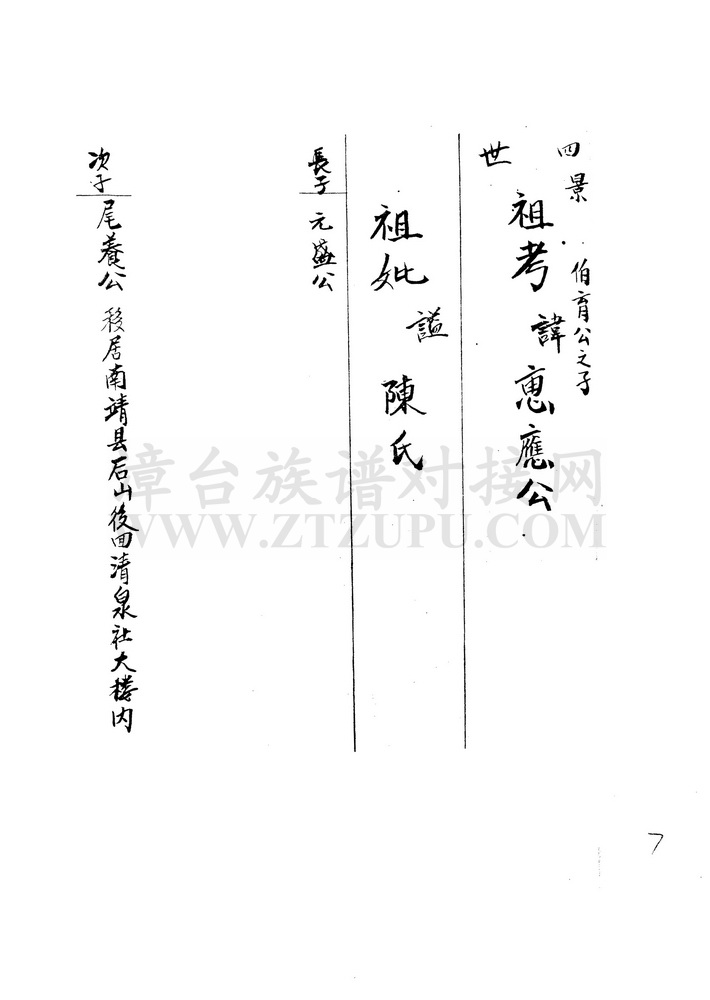 四景
世
伯育公之子
祖考諱惠應公
祖妣謚陳氏
長子元盛公
次子尾養公移居南靖县后山後回清泉社大楼内
漳台族谱对接网
WWW.ZTZUPU.COM
7